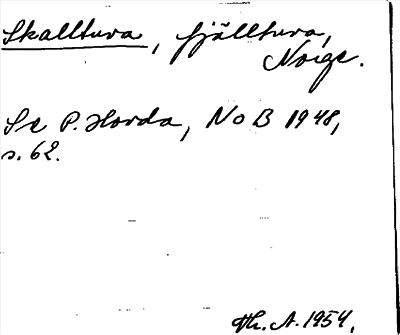 Skalltuva, fjälltuva,
Norge.
Se P. Hovda, NoB 1948,
s. 62.
Th. A. 1954.